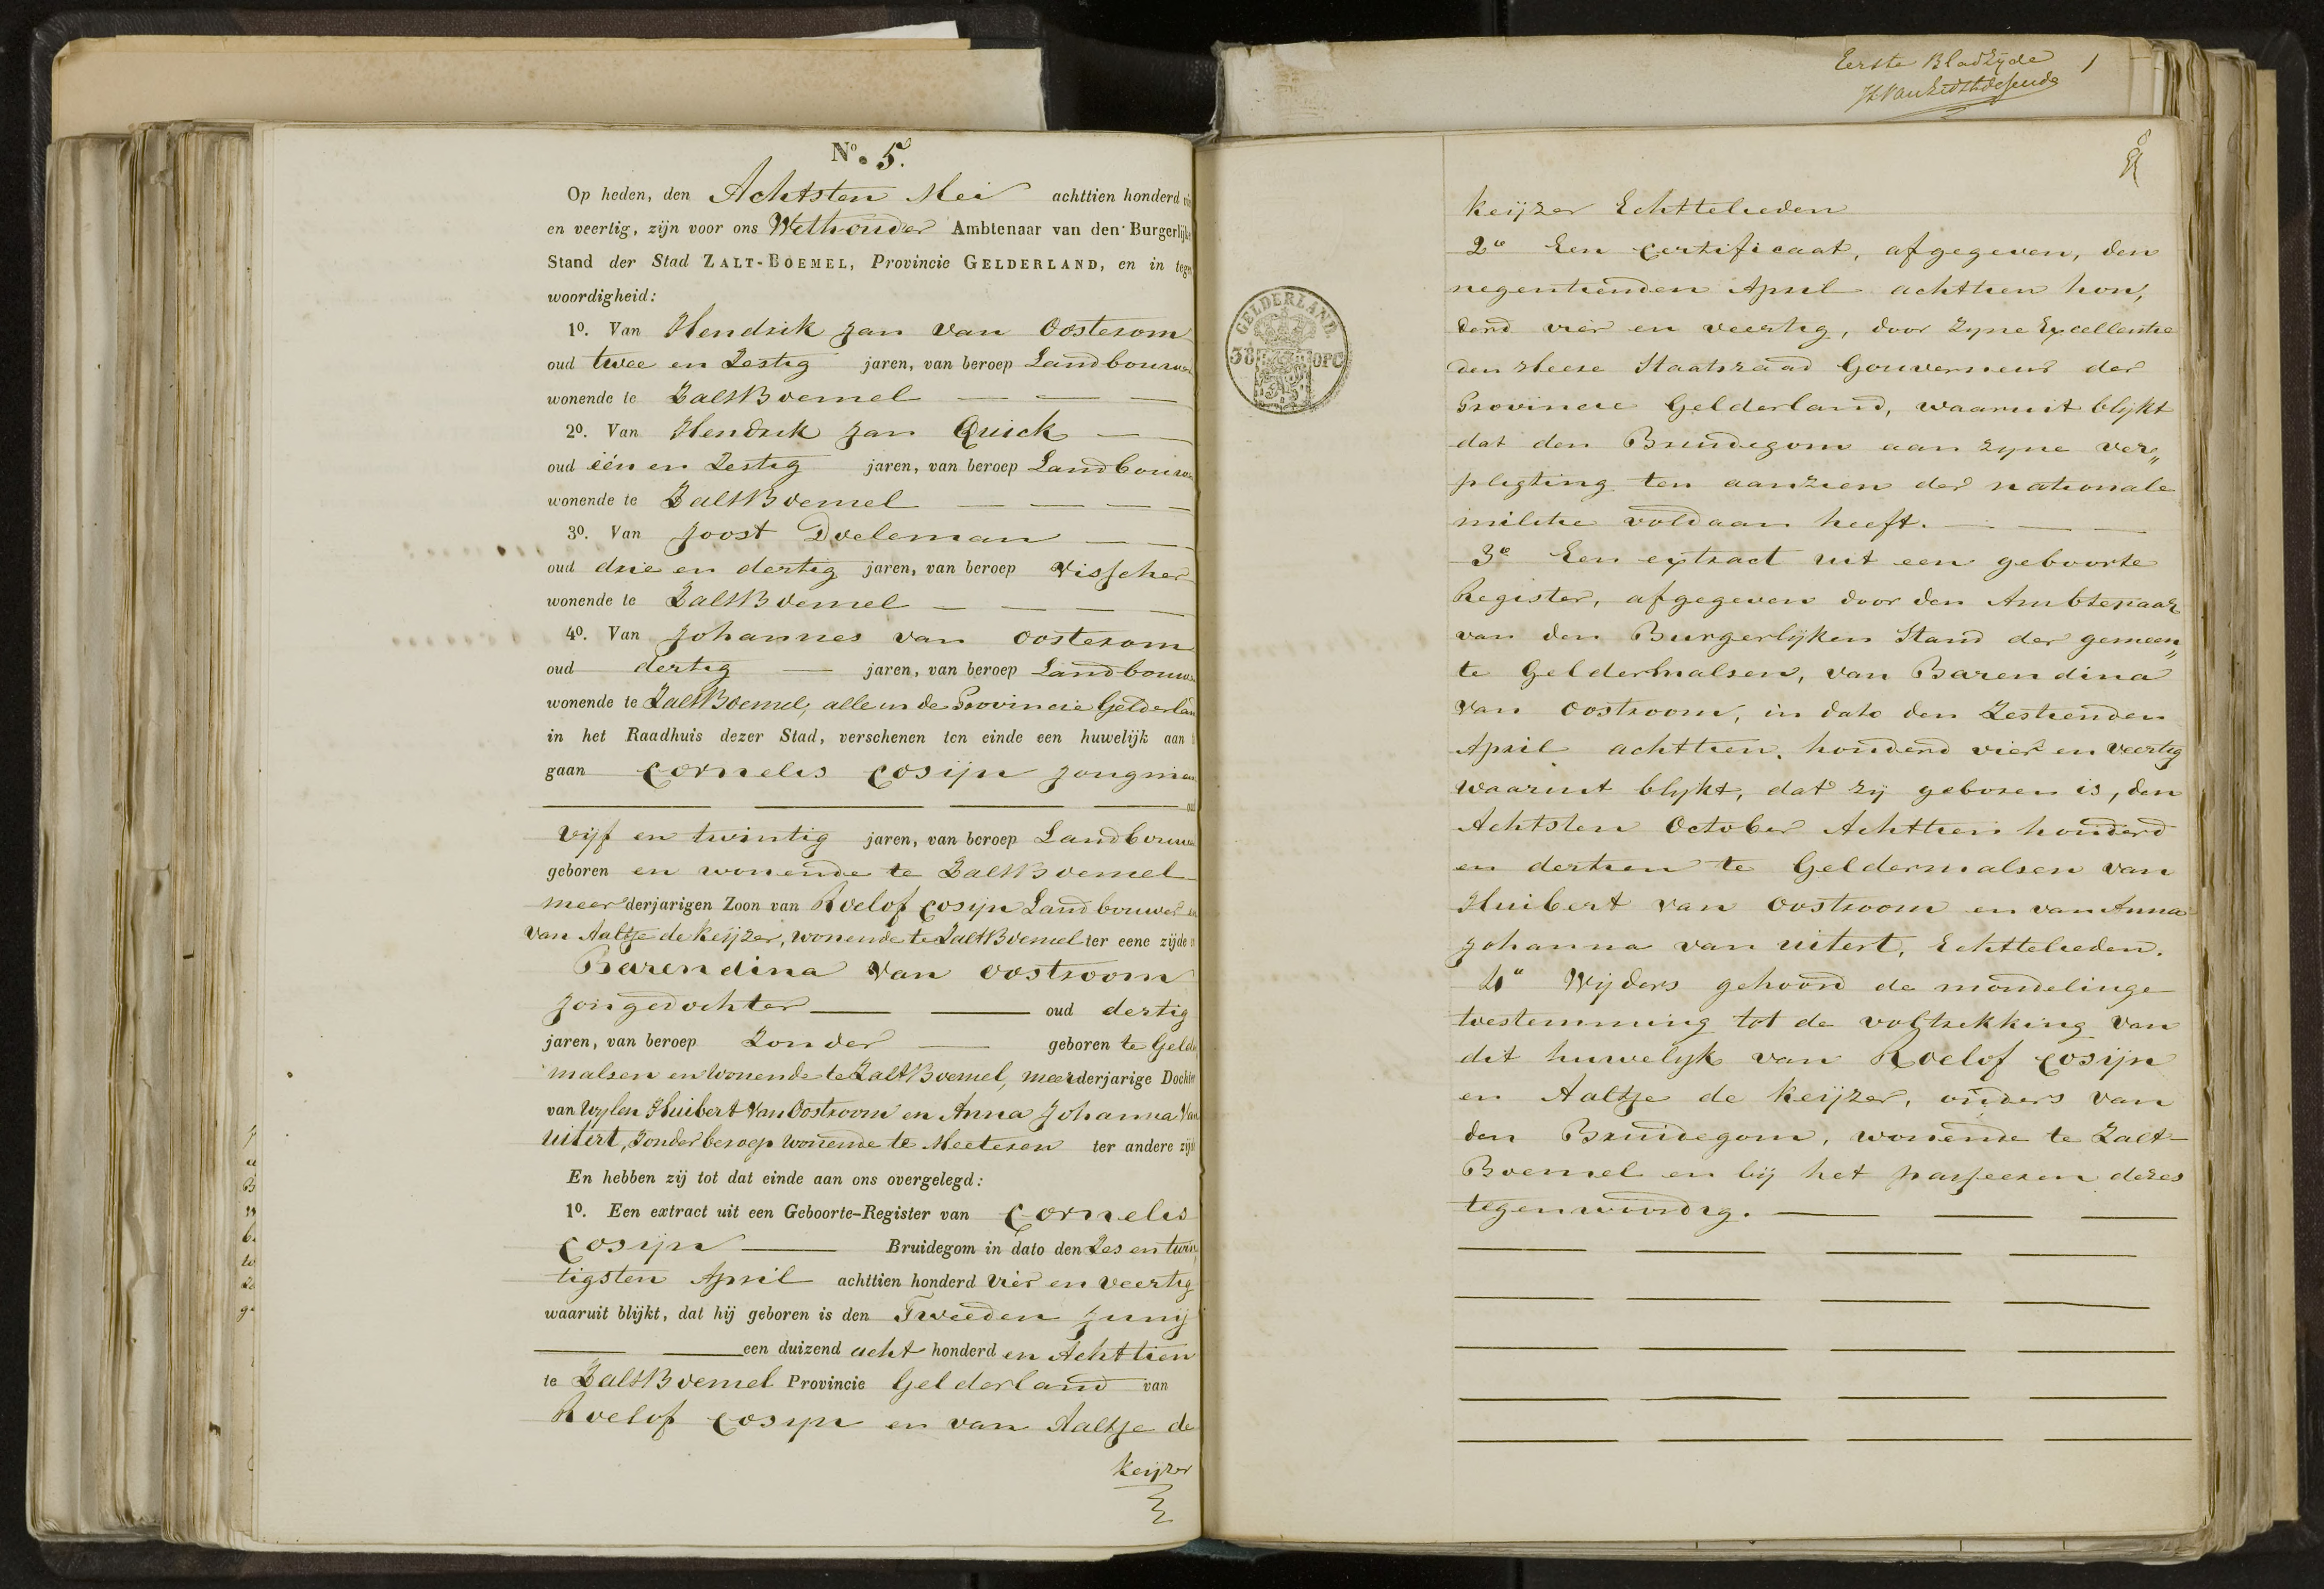 No. 5.
Op heden, den Achtsten Mei achttien honderd
en veertig, zijn voor ons Wethouder Ambtenaar van den Burgerlijke
Stand der Stad ZALT-BOEMEL, Provincie GELDERLAND, en in tegen
woordigheid:
1o. Van Hendrik Jan van Oosterom
oud twee en Zestig jaren, van beroep Landbouwer
wonende te ZaltBoemel
2o. Van Hendrik Jan Quick
oud één en Zestig jaren, van beroep Landbouwer
wonende te ZaltBoemel
3o. Van Joost Doeleman
oud drie en dertig jaren, van beroep Visscher
wonende te ZaltBoemel
4o. Van Johannes van Oosterom
oud dertig jaren, van beroep Landbouwer
wonende te ZaltBoemel, alle in de Provincie Gelderland
in het Raadhuis dezer Stad, verschenen ten einde een huwelijk aan
gaan Cornelis Cosijn Jongman
oud
vijf en twintig jaren, van beroep Landbouwer
geboren en wonende te ZaltBoemel
meerderjarigen Zoon van Roelof Cosijn Landbouwer en
van Aaltje de Keijzer, wonende te ZaltBoemel ter eene zijde
Barendina van Oostroom
Jongedochter oud dertig
jaren, van beroep Zonder geboren te Gelder
malsen en Wonende te ZaltBoemel, meerderjarige Dochter
van Wylen Huibert van Oostroom en Anna Johanna Van
Uitert, Zonder beroep wonende te Meeteren ter andere zijde
En hebben zij tot dat einde aan ons overgelegd:
1o. Een extract uit een Geboorte-Register van Cornelis
Cosijn Bruidegom in dato den Zes en twin
tigsten April achttien honderd vier en veertig
waaruit blijkt, dat hij geboren is den Tweeden Junij
een duizend acht honderd en Achttien
te ZaltBoemel Provincie Gelderland van
Roelof Cosijn en van Aaltje de
Keijzer
Eerste Bladzijde 1
GELDERLAND
38 OPC
Keijzer Echtelieden
2o Een Certificaat, afgegeven, den
negentienden April achttien hon,
derd vier en veertig, door Zyne Excellentie
den Heere Staatsraad Gouverneur der
Provincie Gelderland, waaruit blijkt
dat den Bruidegom aan zyne ver„
pligting ten aanzien der nationale
militie voldaan heeft.
3o Een extract uit een geboorte
Register, afgegeven door den Ambtenaar
van den Burgerlijken Stand der gemeen„
te Geldermalsen, van Barendina
van Oostroom, in dato den Zestienden
April achttien honderd vier en veertig
waaruit blijkt, dat zij geboren is, den
Achtsten October Achttien honderd
en dertien te Geldermalsen van
Huibert van Oostroom en van Anna
Johanna van Uitert, Echtelieden.
4o Wijders gehoord de mondelinge
toestemming tot de voltrekking van
dit huwelijk van Roelof Cosijn
en Aaltje de Keijzer, ouders van
den Bruidegom, wonende te Zalt-
Boemel en bij het passeeren dezes
tegenwoordig.